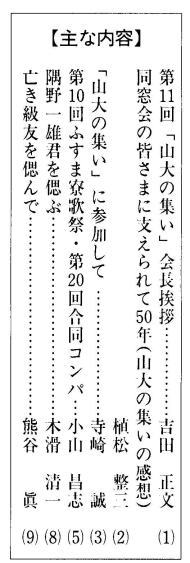 【主な内容】
第11回「山大の集い」会長挨拶…………吉田 正文 (1)
同窓会の皆さまに支えられて50年(山大の集いの感想)
植松 整三 (2)
「山大の集い」に参加して…………寺崎 誠 (3)
第10回ふすま寮歌祭・第20回合同コンパ…小山 昌志 (5)
隅野一雄君を偲ぶ…………木滑 清一 (8)
亡き級友を偲んで…………熊谷 眞 (9)